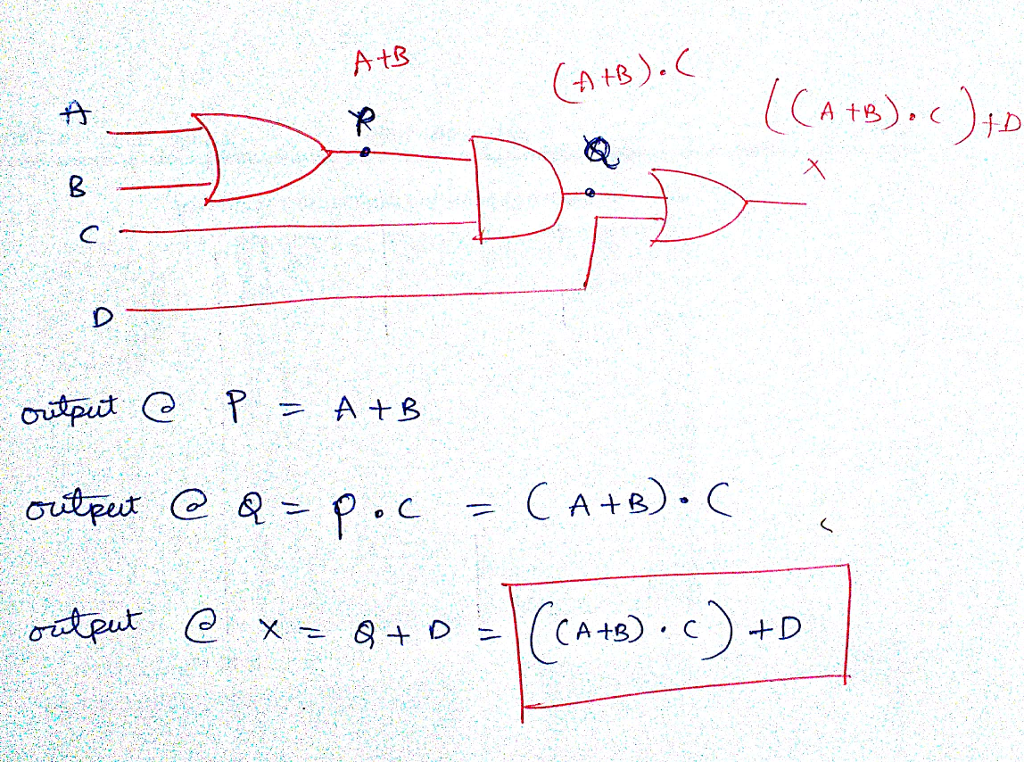 A+B
(A+B).C
((A+B).C)+D
A
P
Q
X
B
C
D
output @ P = A+B
output @ Q = P.C = (A+B).C
output @ X = Q+D = ((A+B).C)+D